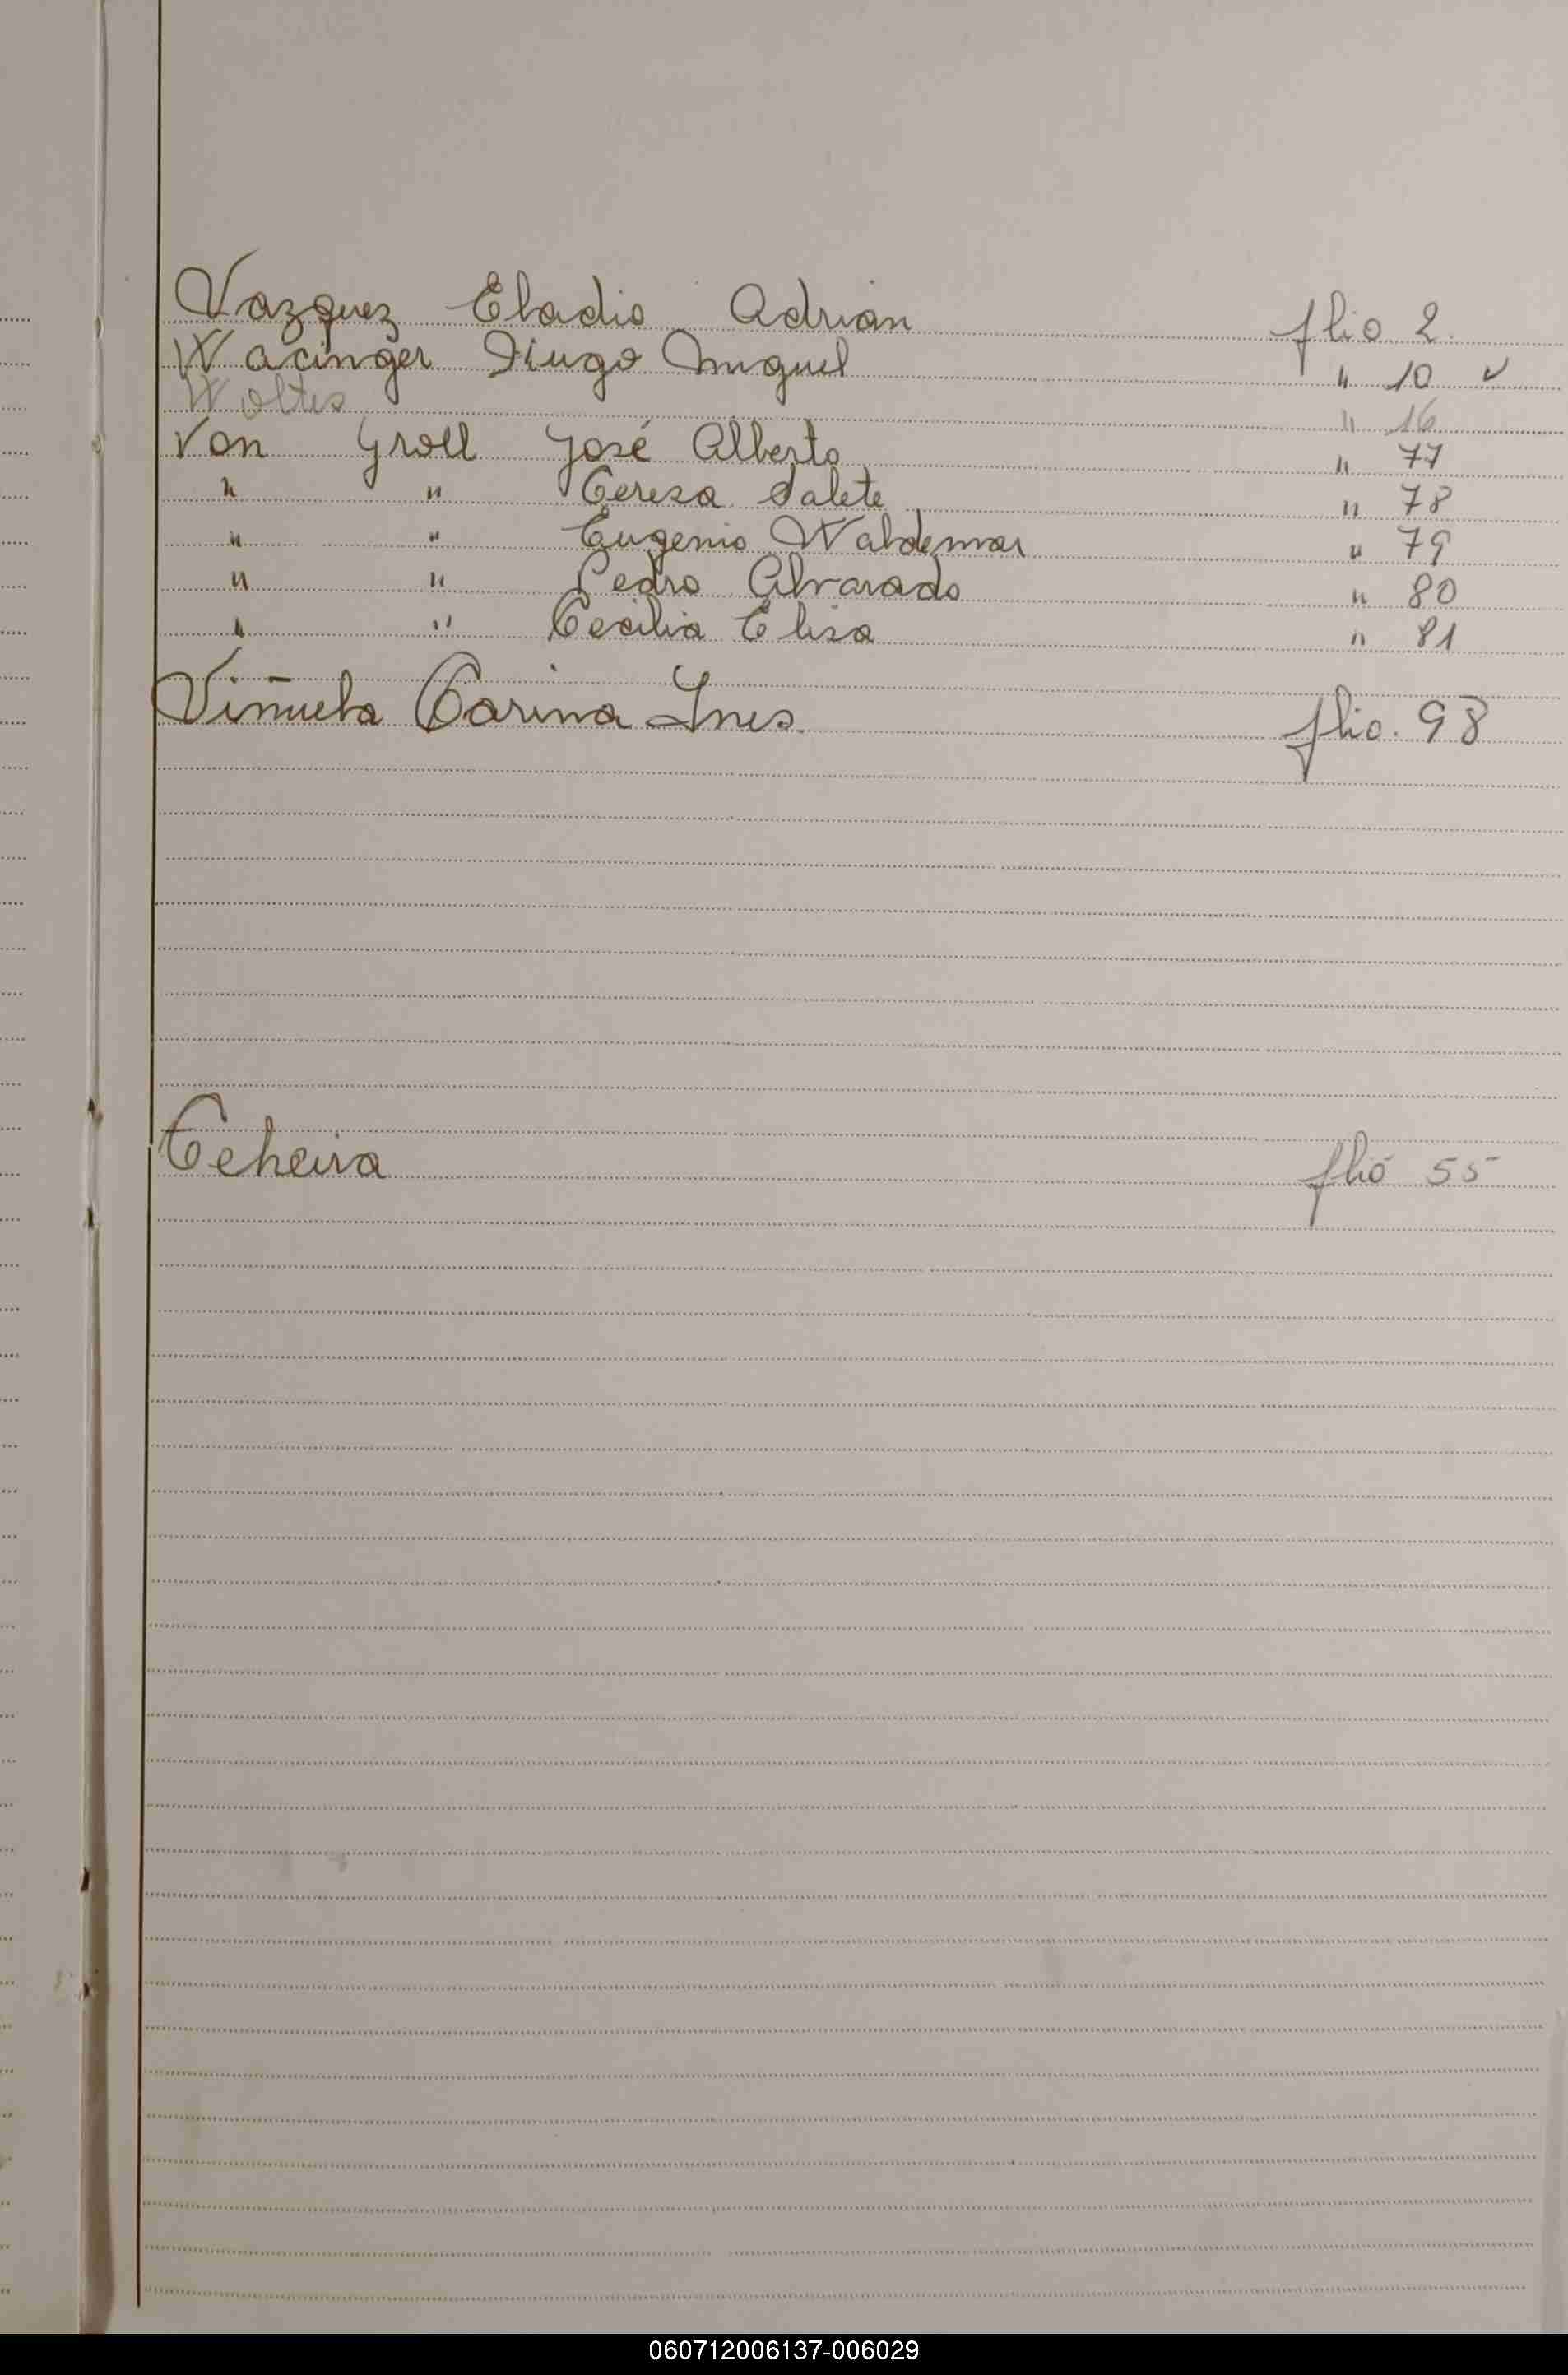 Vazquez Eladio Adrian flio 2.
Wacinger Hugo Miguel " 10 ✓
Woltes " 16
Von Groll José Alberto " 77
" " Teresa Salete " 78
" " Eugenio Waldemar " 79
" " Pedro Alvarado " 80
" " Cecilia Elisa " 81
Viñuela Carina Ines. flio. 98
Teheira flio 55
060712006137-006029